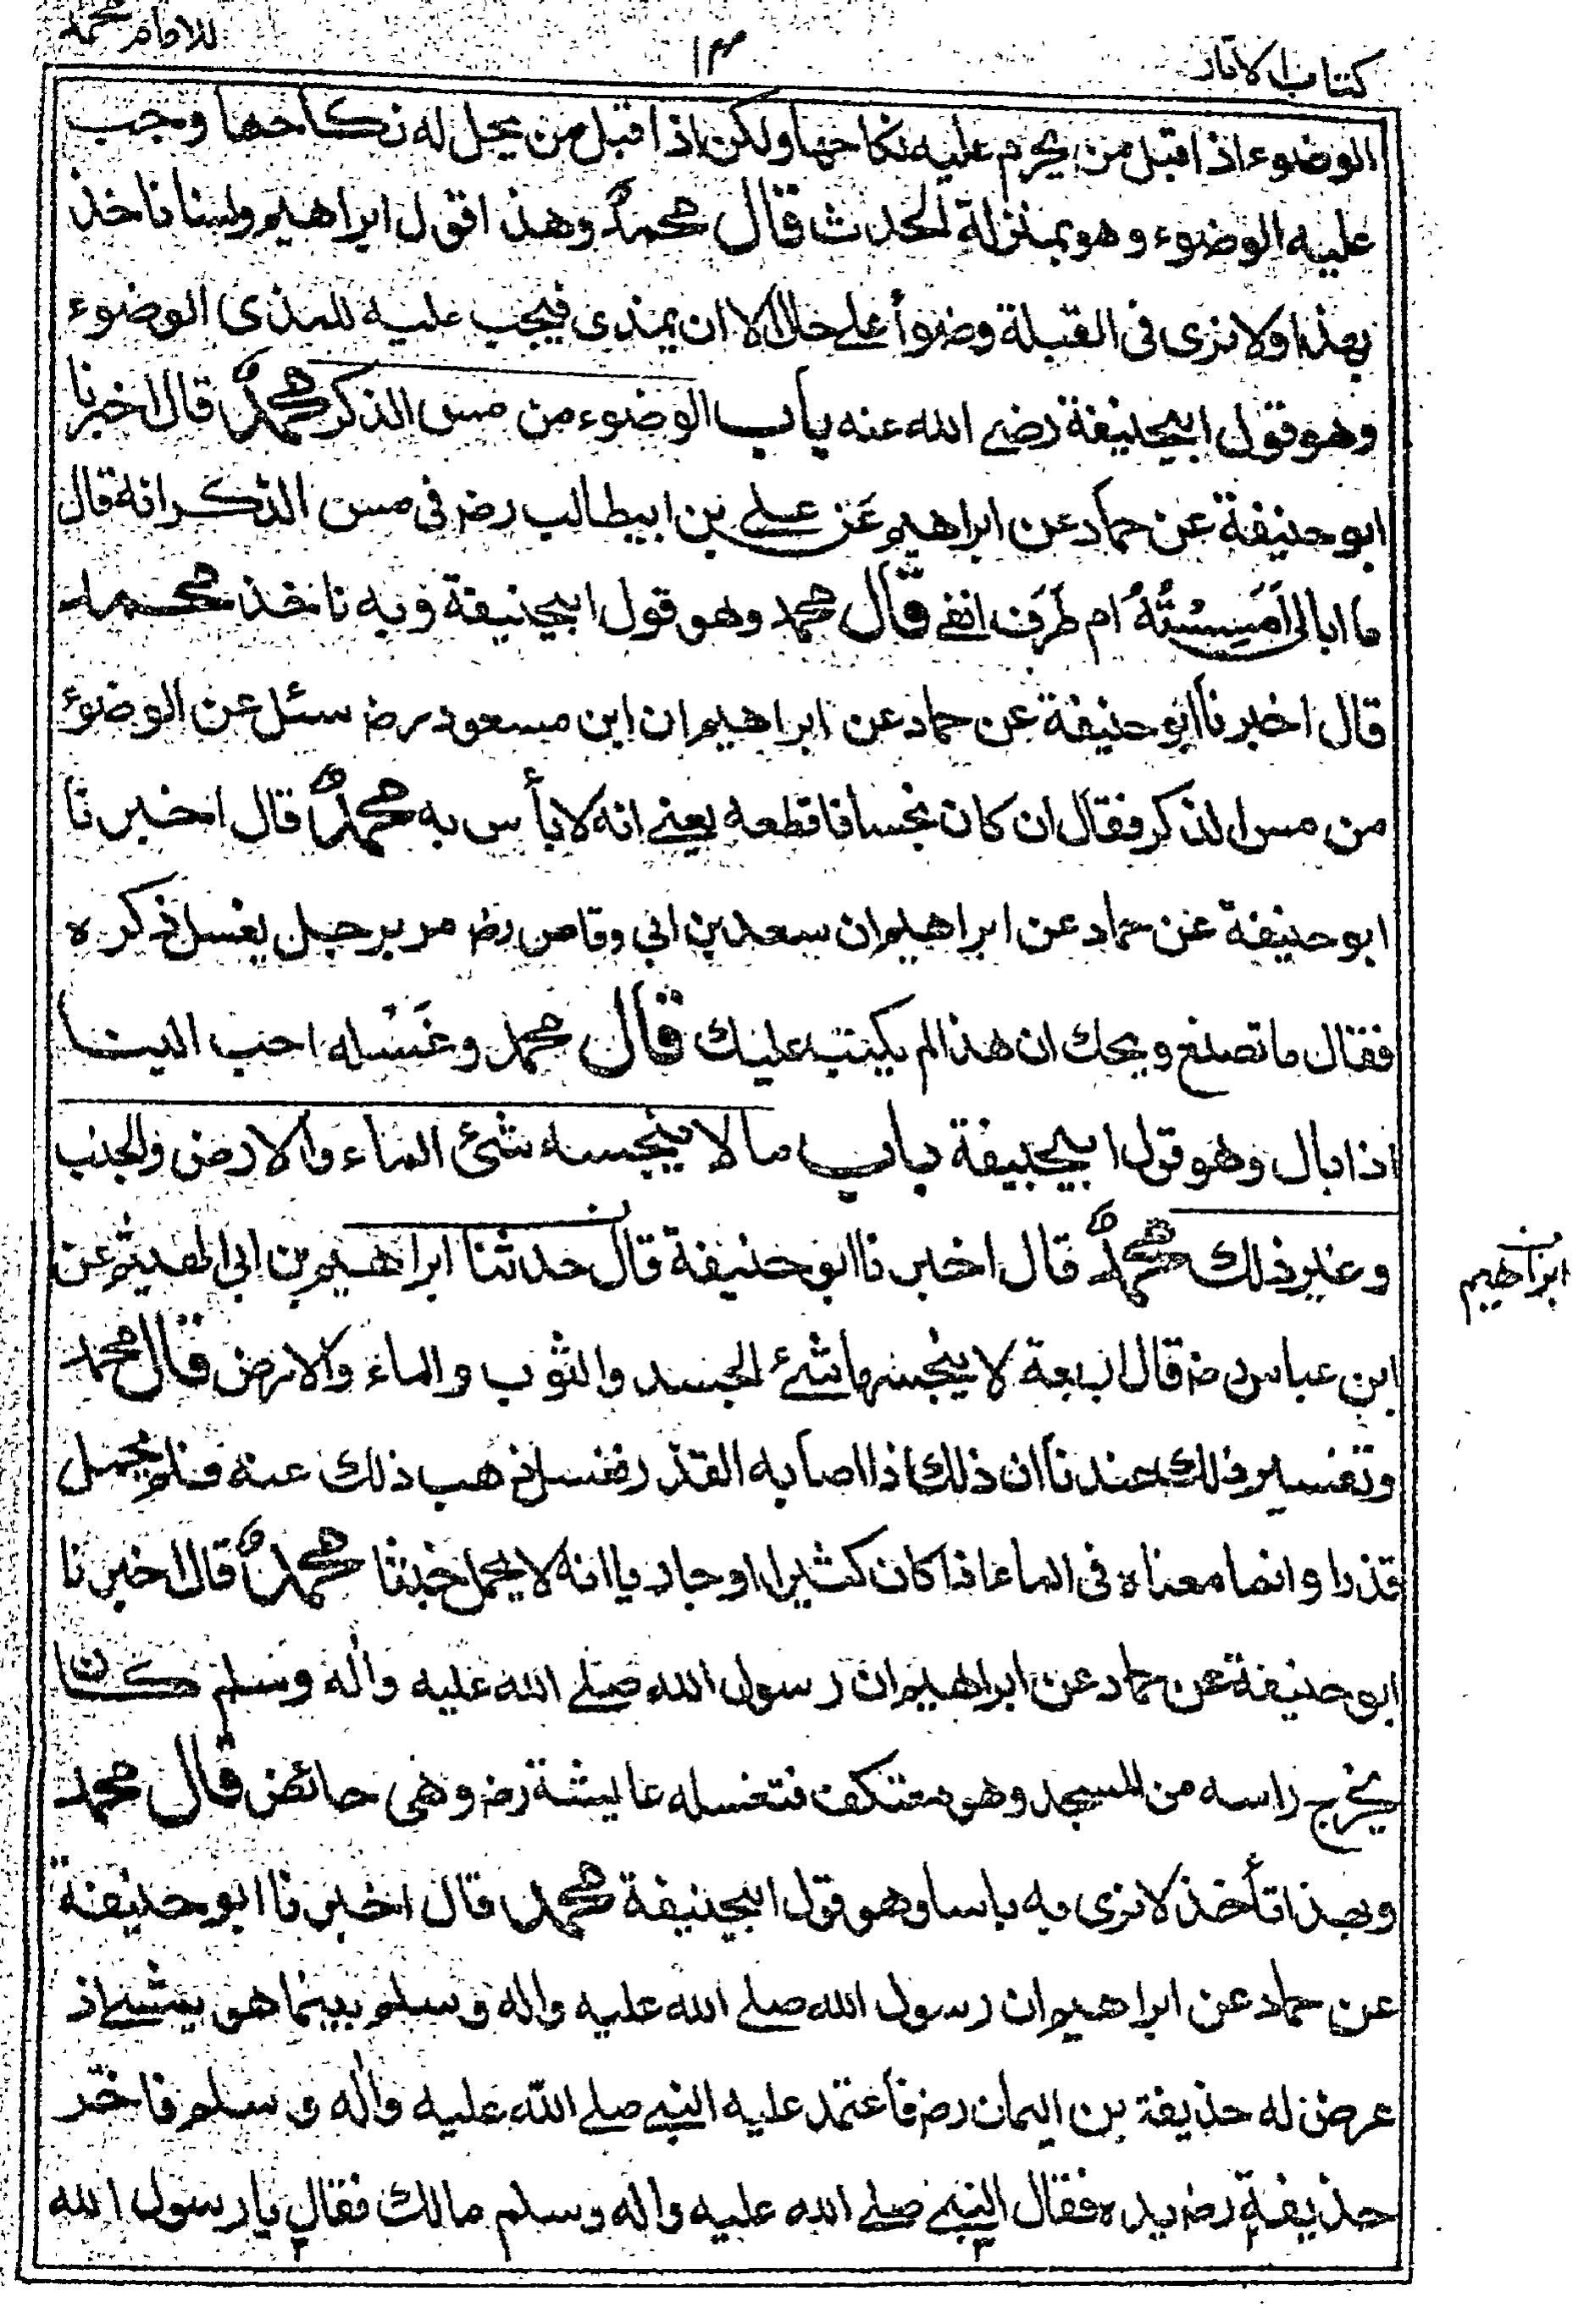 كتاب الاثار
١٣
للامام محمد
الوضوء اذا قبل من يحرم عليه نكاحها ولكن اذا قبل من يحل له نكاحها وجب
عليه الوضوء وهو بمنزلة الحدث قال محمد وهذا قول ابراهيم ولسنا ناخذ
بهذا ولا نرى فى القبلة وضوأ على حال الا ان يمذى فيجب عليه للمذى الوضوء
وهو قول ابيحنيفة رضي الله عنه باب الوضوء من مس الذكر محمد قال اخبرنا
ابو حنيفة عن حماد عن ابراهيم عن علي بن ابيطالب رض فى مس الذكر انه قال
ما ابالى اَمَسِسْتُهُ ام طَرَف انفي قال محمد وهو قول ابيحنيفة وبه ناخذ محمد
قال اخبرنا ابو حنيفة عن حماد عن ابراهيم ان ابن مسعود رض سئل عن الوضوء
من مس الذكر فقال ان كان نجسا فاقطعه يعني انه لا بأس به محمد قال اخبرنا
ابو حنيفة عن حماد عن ابراهيم ان سعد بن ابي وقاص رض مر برجل يغسل ذكره
فقال ما تصنع ويحك ان هذا لم يكتب عليك قال محمد وغَسْله احب الينا
اذا بال وهو قول ابيحنيفة باب ما لا ينجسه شئ الماء والارض والجنب
وغير ذلك محمد قال اخبرنا ابو حنيفة قال حدثنا ابراهيم بن ابي الهيثم عن
ابراهيم
ابن عباس رض قال اربعة لا ينجسها شئ الجسد والثوب والماء والارض قال محمد
وتفسير ذلك عندنا ان ذلك اذا اصابه القذر فغسل ذهب ذلك عنه فلم يحمل
قذرا وانما معناه فى الماء اذا كان كثيرا او جاريا انه لا يحمل خبثا محمد قال اخبرنا
ابو حنيفة عن حماد عن ابراهيم ان رسول الله صلے الله عليه واله وسلم كان
يخرج راسه من المسجد وهو معتكف فتغسله عايشة رض وهى حائض قال محمد
وبهذا نأخذ لا نرى به باسا وهو قول ابيحنيفة محمد قال اخبرنا ابو حنيفة
عن حماد عن ابراهيم ان رسول الله صلے الله عليه واله وسلم بينما هو يمشے اذ
عرض له حذيفة بن اليمان رض فأعتمد عليه النبے صلے الله عليه واله وسلم فاخر
حذيفة رض يده فقال النبے صلے الله عليه واله وسلم مالك فقال يا رسول الله